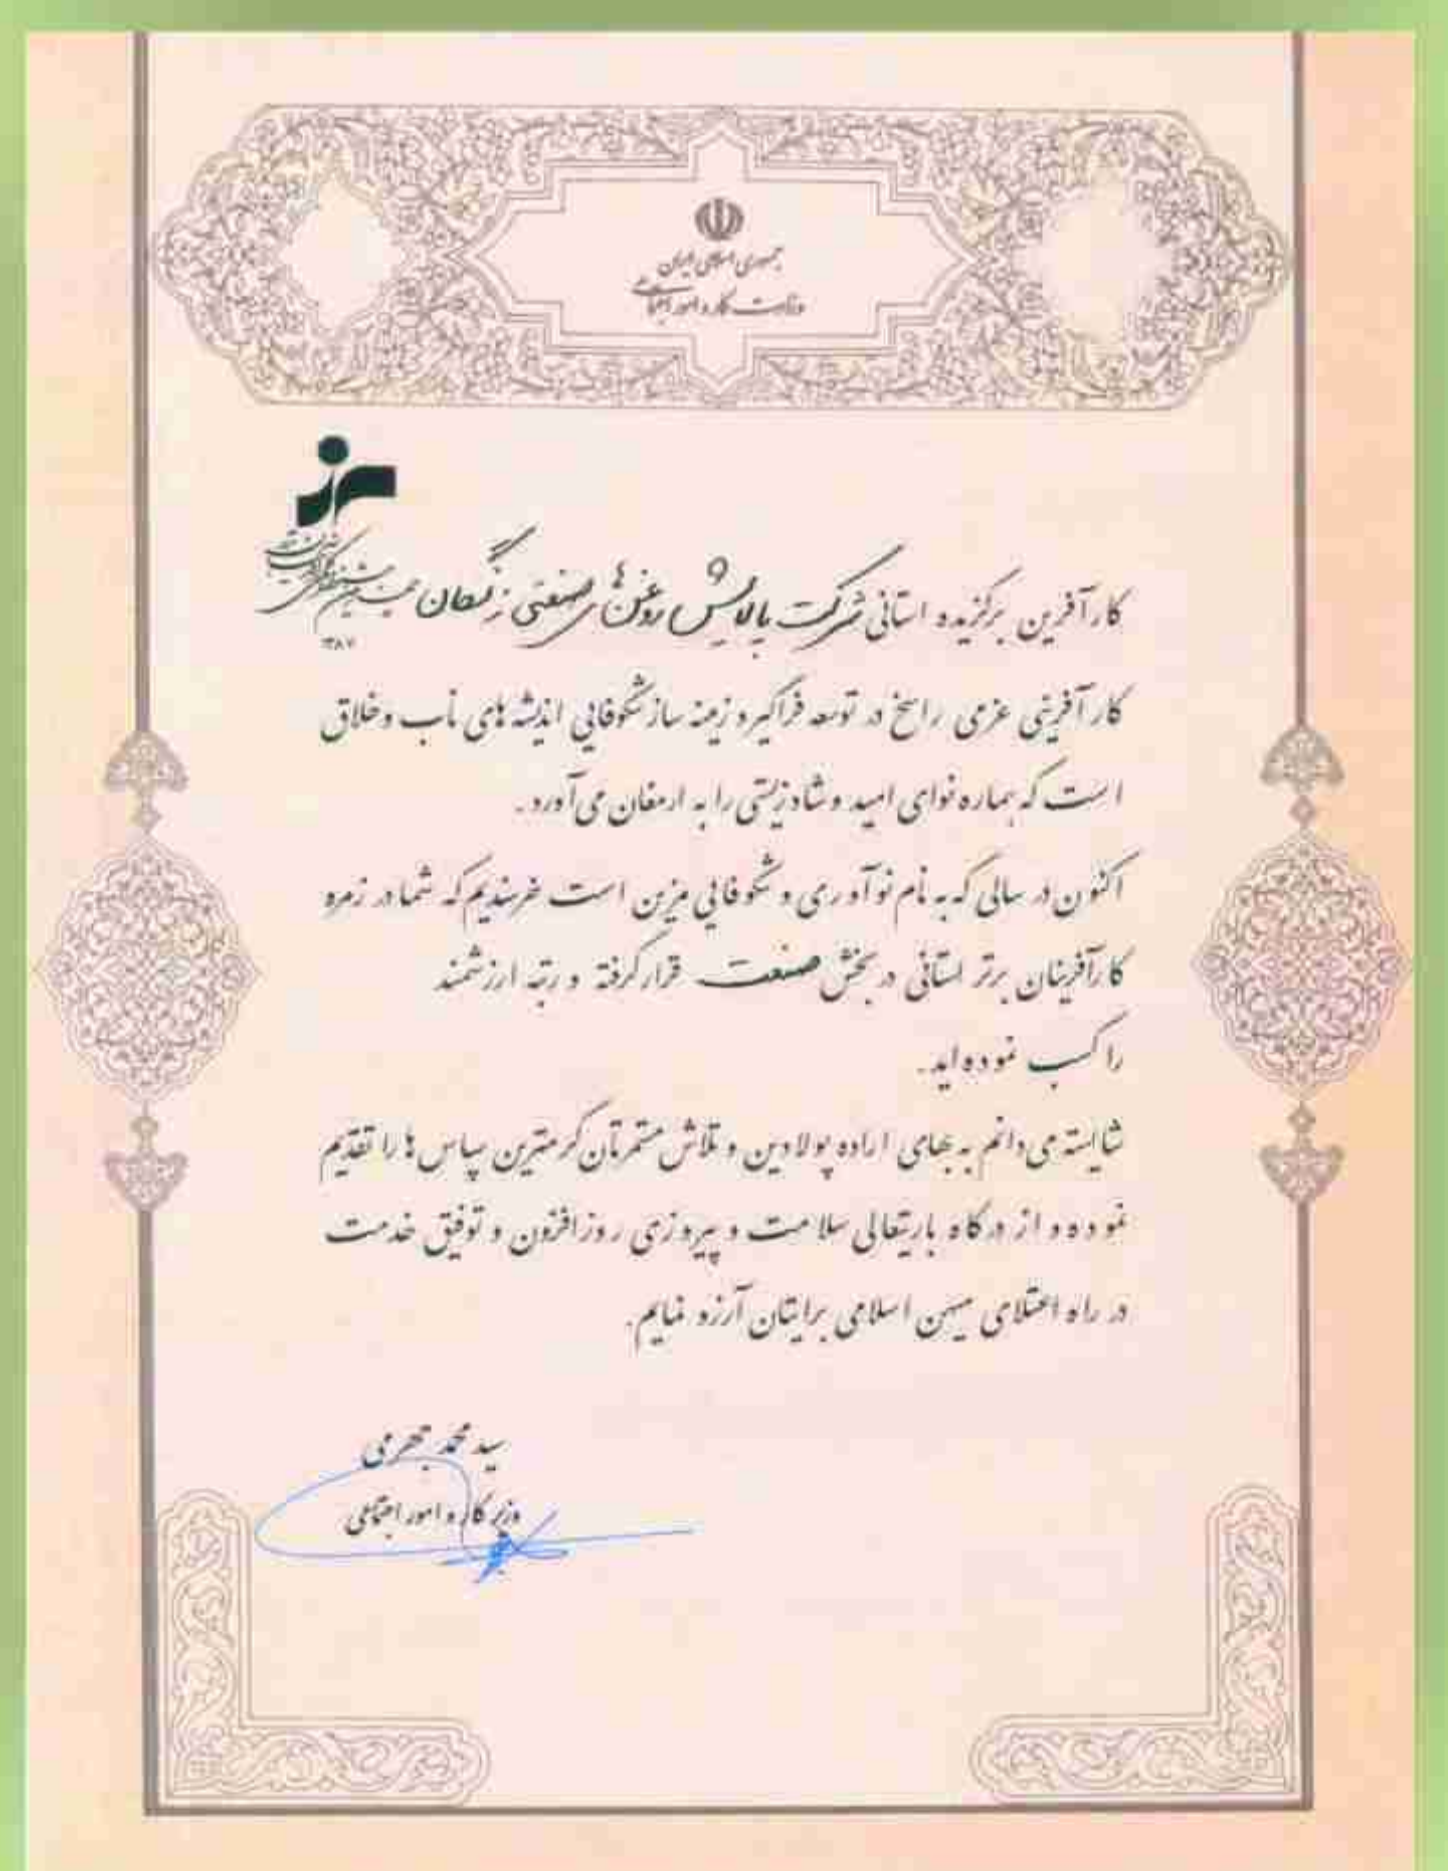 جمهوری اسلامی ایران
وزارت کار و امور اجتماعی
۱۳۸۷
کارآفرین برگزیده استانی شرکت پالایش روغن های صنعتی زنگان
کارآفرینی عزمی راسخ در توسعه فراگیر و زمینه ساز شکوفایی اندیشه های ناب و خلاق
است که هماره نوای امید و شادزیستی را به ارمغان می آورد.
اکنون در سالی که به نام نوآوری و شکوفایی مزین است خرسندیم که شما در زمره
کارآفرینان برتر استانی در بخش صنعت قرار گرفته و رتبه ارزشمند
را کسب نموده اید.
شایسته می دانم به بهای اراده پولادین و تلاش مستمرتان گرمترین سپاس ها را تقدیم
نموده و از درگاه باریتعالی سلامت و پیروزی روزافزون و توفیق خدمت
در راه اعتلای میهن اسلامی برایتان آرزو نمایم.
سید محمد جهرمی
وزیر کار و امور اجتماعی